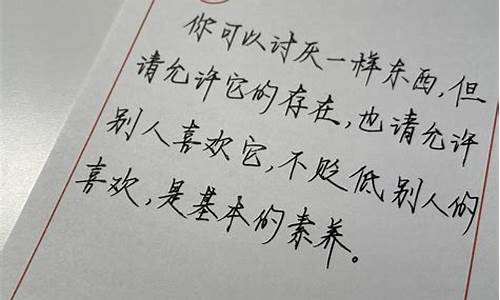 你可以讨厌一样东西,但
请允许它的存在,也请允许
别人喜欢它,不贬低别人的
喜欢,是基本的素养。